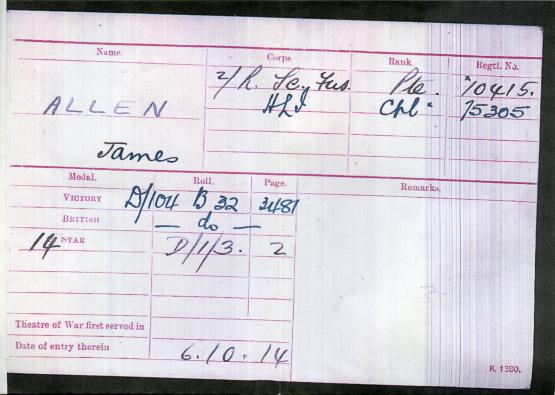 Name. Corps. Rank. Regtl. No.
2/R. Sc. Fus. Pte. *10415.
ALLEN HLI Cpl " 75305
James
Medal. Roll. Page. Remarks.
VICTORY D/104 B 32 3481
BRITISH — do —
14 STAR D/1/3. 2
Theatre of War first served in
Date of entry therein 6.10.14
K. 1380.